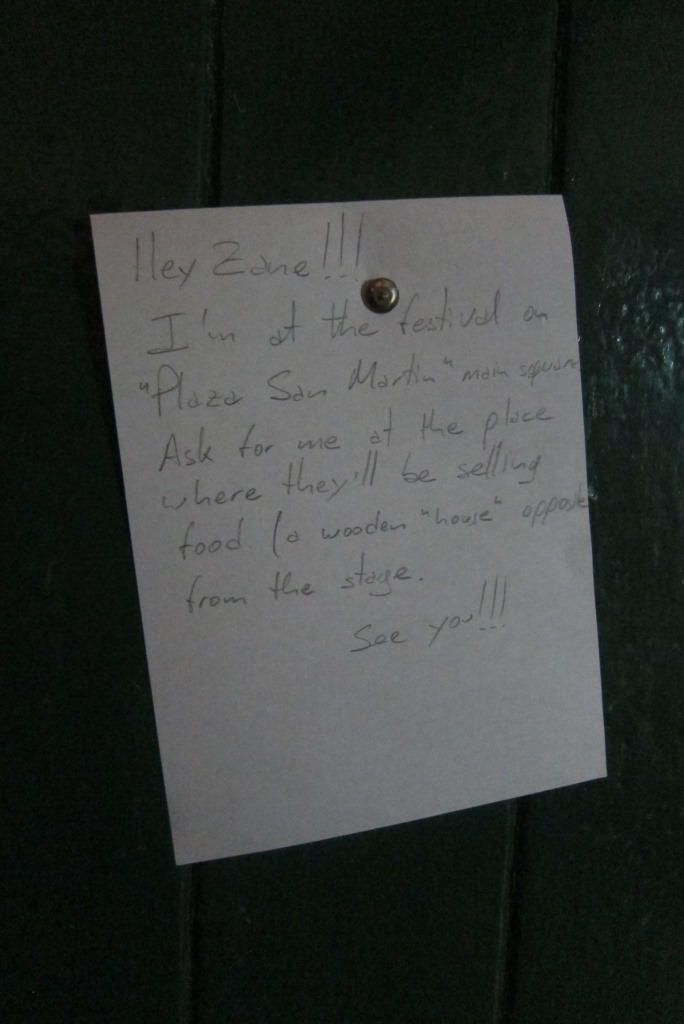 Hey Zane!!!
I'm at the festival on
"Plaza San Martin" main square
Ask for me at the place
where they'll be selling
food (a wooden "house" opposite
from the stage.
See you!!!